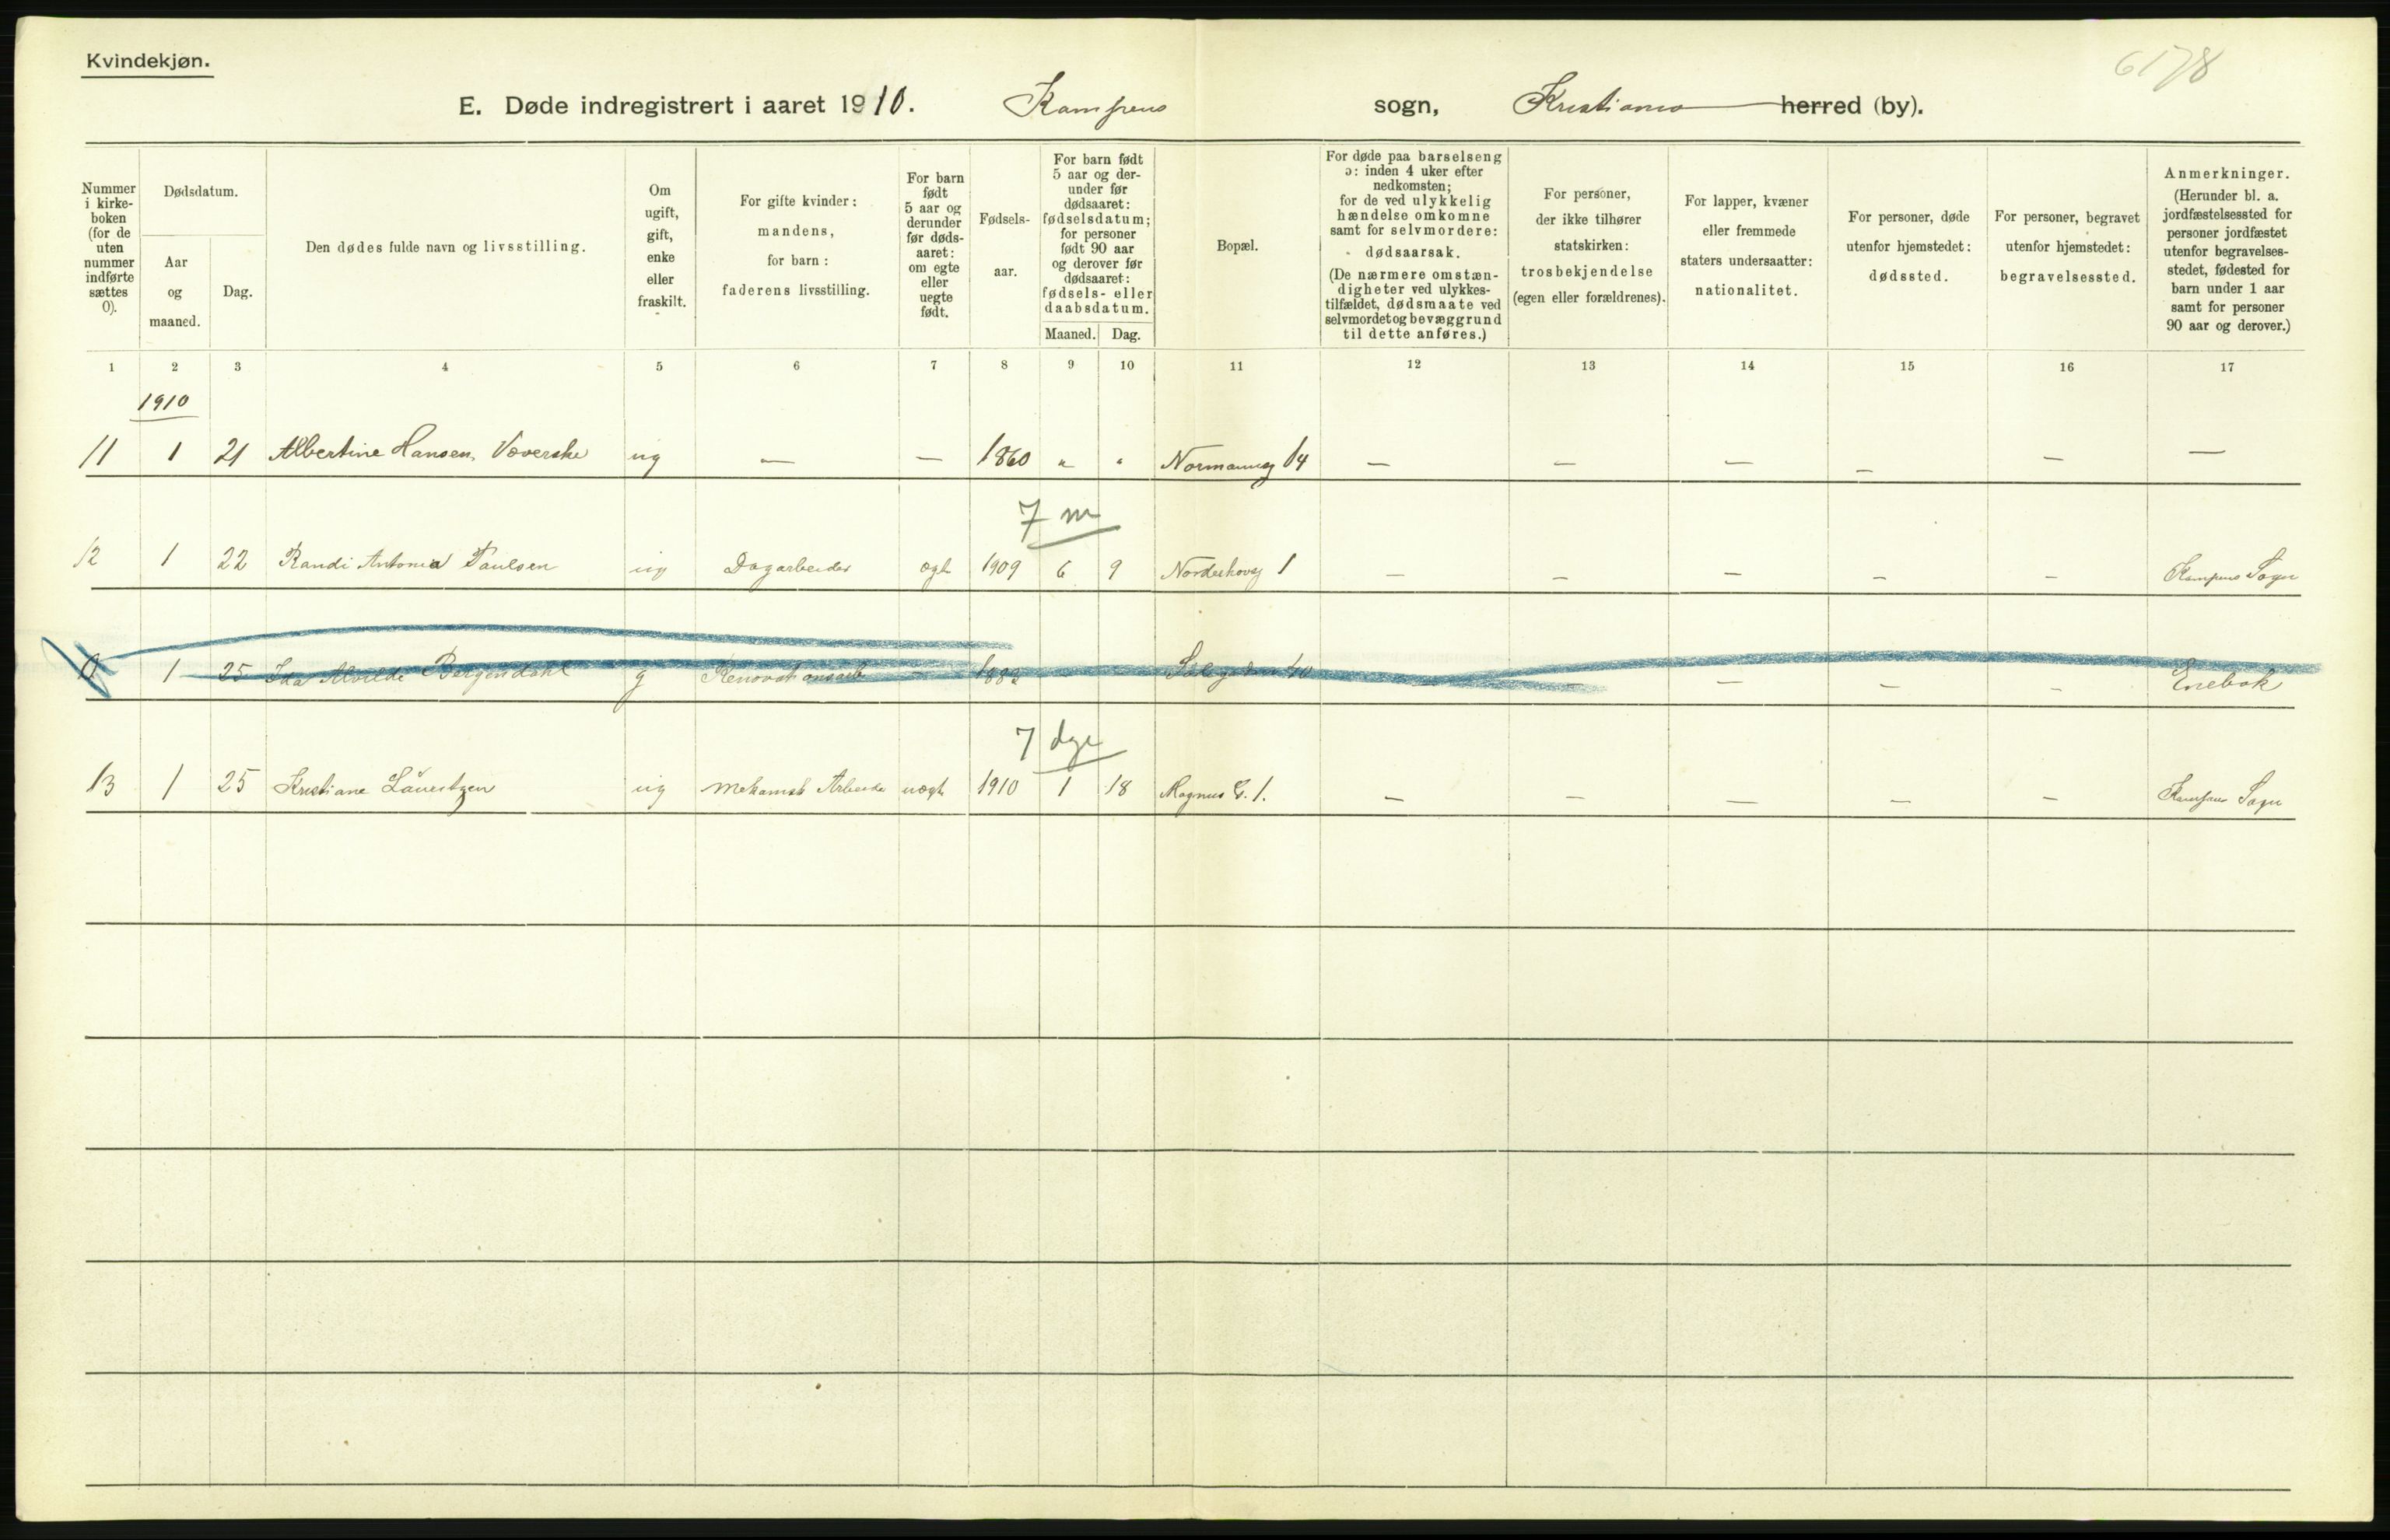 Kvindekjøn.
6178
E. Døde indregistrert i aaret 1910. Kampens sogn, Kristiania herred (by).
Nummer i kirkeboken (for de uten nummer indførte sættes 0).
Dødsdatum.
Aar og maaned.
Dag.
Den dødes fulde navn og livsstilling.
Om ugift, gift, enke eller fraskilt.
For gifte kvinder: mandens, for barn: faderens livsstilling.
For barn født 5 aar og derunder før dødsaaret: om egte eller uegte født.
Fødselsaar.
For barn født 5 aar og derunder før dødsaaret: fødselsdatum; for personer født 90 aar og derover før dødsaaret: fødsels- eller daabsdatum.
Maaned. Dag.
Bopæl.
For døde paa barselseng ɔ: inden 4 uker efter nedkomsten; for de ved ulykkelig hændelse omkomne samt for selvmordere: dødsaarsak. (De nærmere omstændigheter ved ulykkestilfældet, dødsmaate ved selvmordet og bevæggrund til dette anføres.)
For personer, der ikke tilhører statskirken: trosbekjendelse (egen eller forældrenes).
For lapper, kvæner eller fremmede staters undersaatter: nationalitet.
For personer, døde utenfor hjemstedet: dødssted.
For personer, begravet utenfor hjemstedet: begravelsessted.
Anmerkninger. (Herunder bl. a. jordfæstelsessted for personer jordfæstet utenfor begravelsesstedet, fødested for barn under 1 aar samt for personer 90 aar og derover.)
1 2 3 4 5 6 7 8 9 10 11 12 13 14 15 16 17
1910
11 1 21 Albertine Hansen, Væverske ug — — 1860 „ „ Normannsg 14 — — — — — —
7 m
12 1 22 Randi Antonia Paulsen ug Dagarbeider ægte 1909 6 9 Nordrehovsg 1 — — — — — Kampens Sogn
0 1 25 Ida Alvilde Bergendahl g Renovationsarb — 188 40 — — — — — Enebak
7 dge
13 1 25 Kristiane Lauritzen ug Mekanisk Arbeider uægte 1910 1 18 Magnus G. 1. — — — — — Kampens Sogn